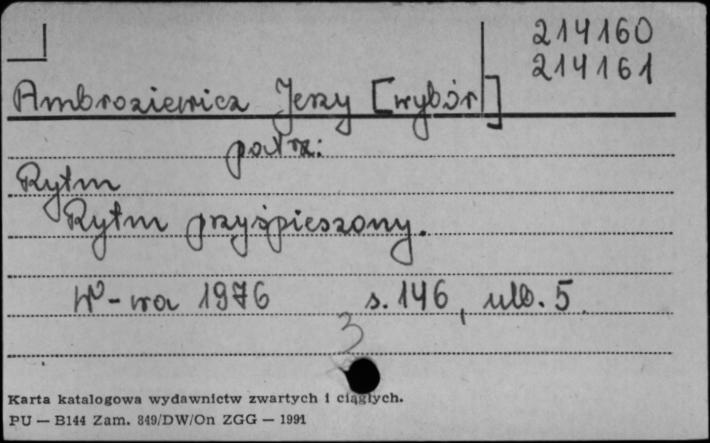 214160
214161
Ambroziewicz Jerzy [wybór]
patrz:
Rytm
Rytm przyśpieszony.
W-wa 1976 s. 146, ulb. 5
3
Karta katalogowa wydawnictw zwartych i ciągłych.
PU — B144 Zam. 849/DW/On ZGG — 1991